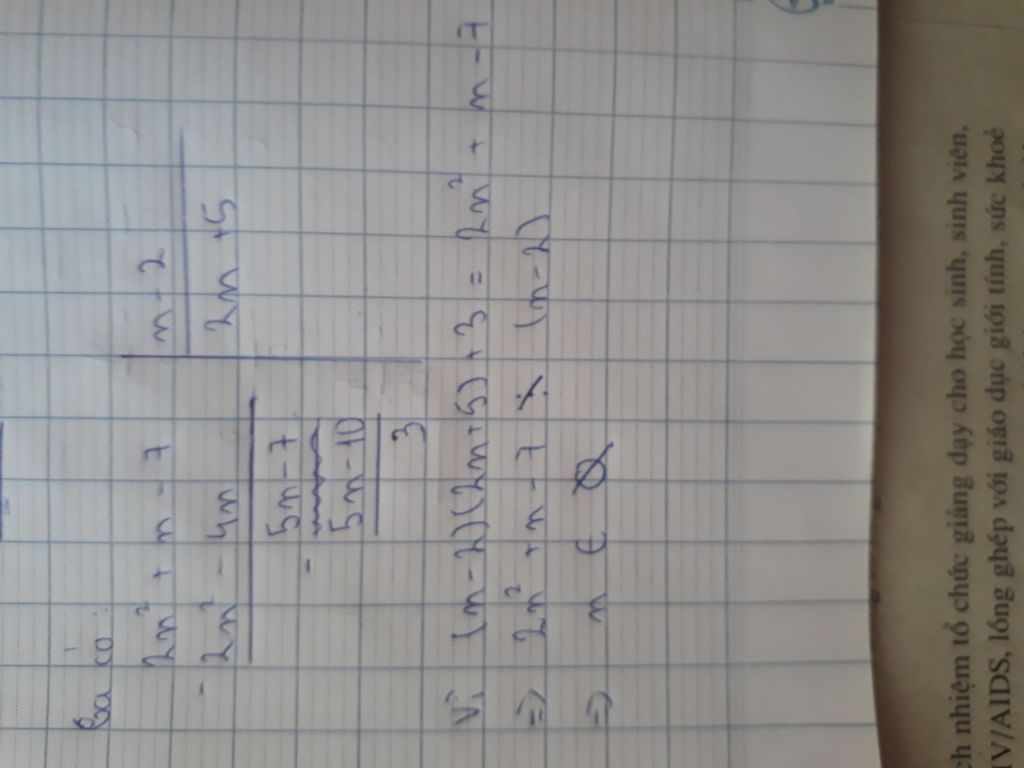 Ta có:
2n² + n - 7 | n - 2
- 2n² - 4n | 2n + 5
5n - 7
- 5n - 10
3
Vì (n - 2)(2n + 5) + 3 = 2n² + n - 7
=> 2n² + n - 7 ⋮̸ (n - 2)
=> n ∈ Ø
ch nhiệm tổ chức giảng dạy cho học sinh, sinh viên,
IV/AIDS, lồng ghép với giáo dục giới tính, sức khoẻ